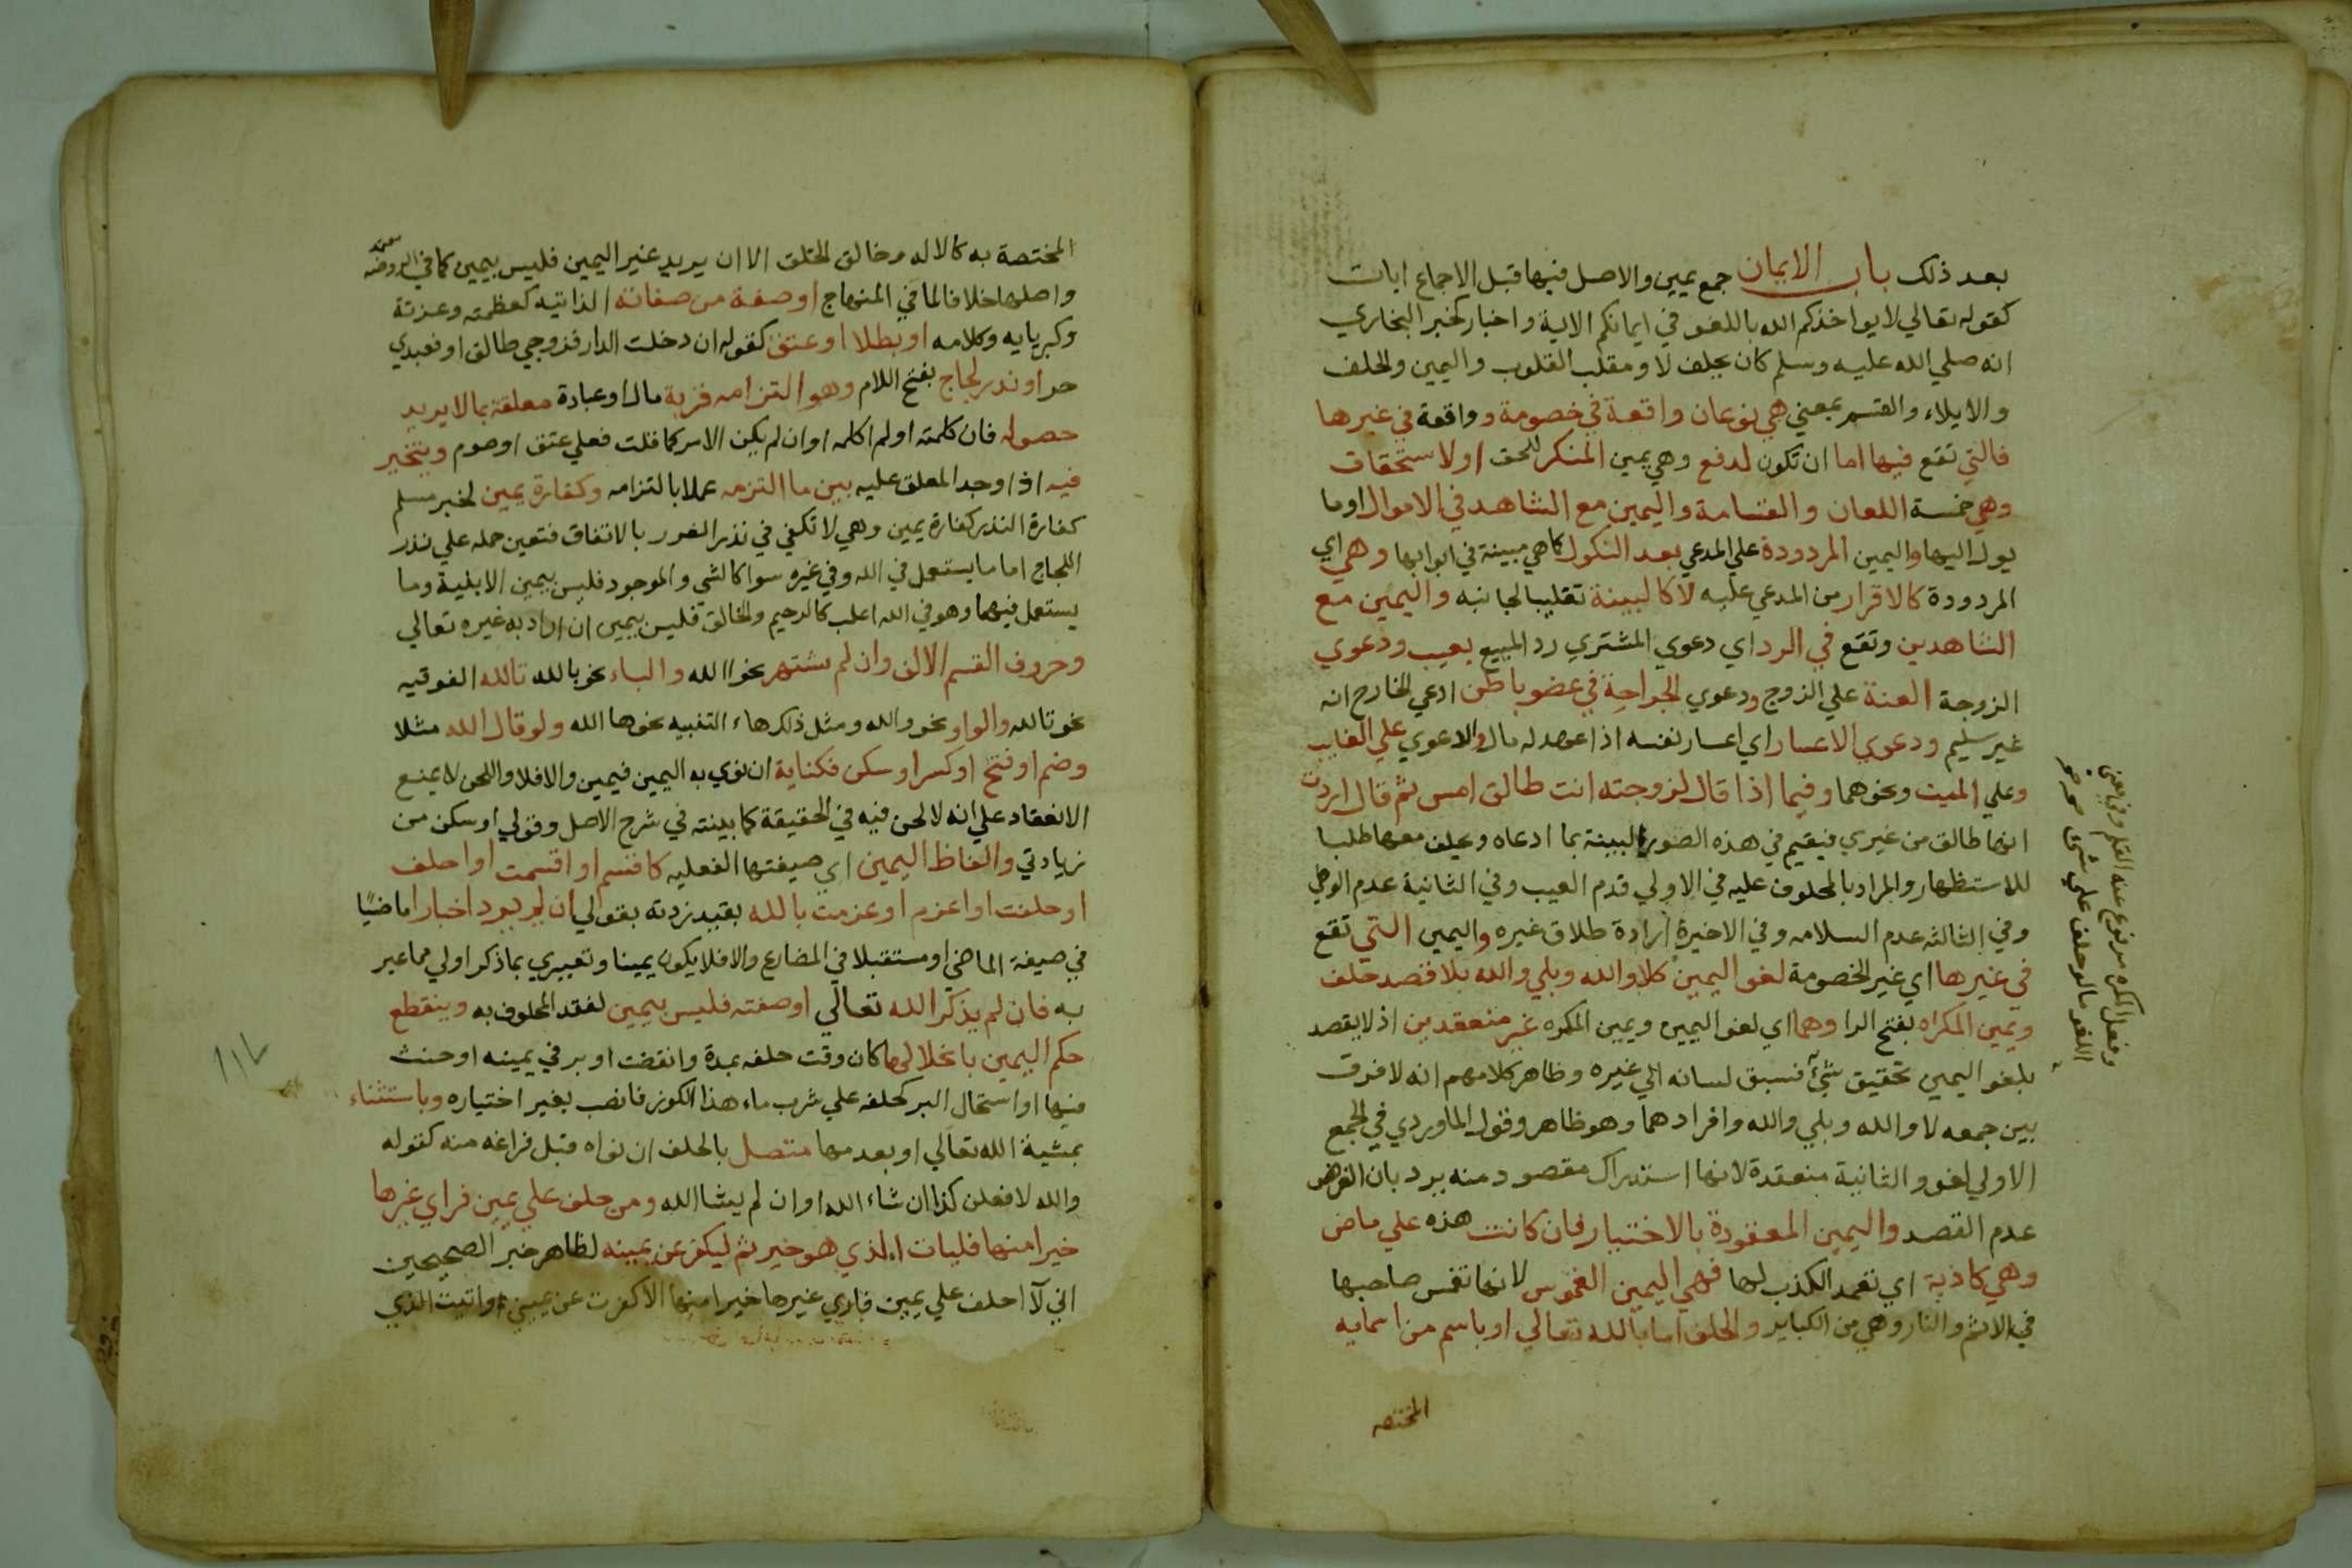 بعد ذلك باب الايمان جمع يمين والاصل فيها قبل الاجماع ايات
كقوله تعالي لا يواخذكم الله باللغو في ايمانكم الاية واخبار كخبر البخاري
انه صلي الله عليه وسلم كان يحلف لا ومقلب القلوب واليمين والحلف
والايلاء والقسم بمعني هي نوعان واقعة في خصومة وواقعة في غيرها
فالتي تقع فيها اما ان تكون لدفع وهي يمين المنكر للحق او لاستحقاق
وهي خمسة اللعان والقسامة واليمين مع الشاهد في الاموال او ما
يول اليها واليمين المردودة علي المدعي بعد النكول كما هي مبينة في ابوابها وهي اي
المردودة كالاقرار من المدعي عليه لا كالبينة تغليبا لجانبه واليمين مع
الشاهدين وتقع في الرد اي دعوي المشتري رد المبيع بعيب ودعوي
الزوجة العنة علي الزوج ودعوي الجراحة في عضو باطن ادعي الجارح انه
غير سليم ودعوي الاعسار اي اعسار نفسه اذا عهد له مال والدعوي علي الغايب
وعلي الميت ونحوهما وفيما اذا قال لزوجته انت طالق امس ثم قال اردت
انها طالق من غيري فيقيم في هذه الصور البينة بما ادعاه ويحلف معها طلبا
للاستظهار والمراد بالمحلوف عليه في الاولي قدم العيب وفي الثانية عدم الوطي
وفي الثالثه عدم السلامه وفي الاخيرة ارادة طلاق غيره واليمين التي تقع
في غيرها اي غير الخصومة لغو اليمين كلا والله وبلي والله بلا قصد حلف
ويمين المكراه بفتح الرا وهما اي لغو اليمين ويمين المكره غير منعقدين اذ لا يقصد
بلغو اليمين تحقيق شيء فسبق لسانه الي غيره وظاهر كلامهم انه لا فرق
بين جمعه لا والله وبلي والله وافرادهما وهو ظاهر وقول الماوردي في الجمع
الاولي لغو والثانية منعقدة لانها استدراك مقصود منه يرد بان الفرض
عدم القصد واليمين المعقودة بالاختيار فان كانت هذه علي ماض
وهي كاذبة اي تعمد الكذب لها فهي اليمين الغموس لانها تغمس صاحبها
في الاثم والنار وهي من الكباير والحلف اما بالله تعالي او باسم من اسمايه
المختصه
وفعل المكره مرفوع عنه القلم وفي معني
اللغو ما لو حلف علي شي
المختصة به كالاله وخالق الخلق الا ان يريد غير اليمين فليس بيمين كما في الروضه
واصلها خلافا لما في المنهاج او صفة من صفاته الذاتيه كعظمته وعزته
وكبريايه وكلامه او بطلا او عتق كقوله ان دخلت الدار فزوجي طالق او فعبدي
حر او نذر لجاج بفتح اللام وهو التزامه قربة مال او عبادة معلقة بما لا يريد
حصوله فان كلمته او لم اكلمه او ان لم يكن الامر كما قلت فعلي عتق او صوم ويتخير
فيه اذا وجد المعلق عليه بين ما التزمه عملا بالتزامه وكفارة يمين لخبر مسلم
كفارة النذر كفارة يمين وهي لا تكفي في نذر الغرر بالاتفاق فتعين حمله علي نذر
اللجاج اما ما يستعمل في الله وفي غيره سوا كالشي والموجود فليس بيمين الابنية وما
يستعمل فيهما وهو في الله اغلب كالرحيم والخالق فليس بيمين ان اراد به غيره تعالي
وحروف القسم الالف وان لم يشتهر نحو االله والباء نحو بالله تالله الفوقيه
نحو تالله والواو نحو والله ومثل ذلك هاء التنبيه نحو ها الله ولو قال الله مثلا
وضم او فتح او كسر او سكن فكناية ان نوي به اليمين فيمين والا فلا واللحن لا يمنع
الانعقاد علي انه لا لحن فيه في الحقيقة كما بينته في شرح الاصل وقولي او سكن من
زيادتي والفاظ اليمين اي صيغتها الفعليه كاقسم او اقسمت او احلف
او حلفت او اعزم او عزمت بالله بقيد زدته بقولي ان لم يرد اخبارا ماضيًا
في صيغة الماضي او مستقبلا في المضارع والا فلا يكون يمينا وتعبيري بما ذكر اولي مما عبر
به فان لم يذكر الله تعالي او صفته فليس بيمين لفقد المحلوف به وينقطع
حكم اليمين بانحلالها كان وقت حلفه بمدة وانقضت او بر في يمينه او حنث
فيها او استحال البر كحلفه علي شرب ماء هذا الكوز فانصب بغير اختياره وباستثناء
بمشية الله تعالي او بعدمها متصل بالحلف ان نواه قبل فراغه منه كقوله
والله لافعلن كذا ان شاء الله او ان لم يشا الله ومن حلف علي يمين فراي غيرها
خيرا منها فليات الذي هو خير ثم ليكفر عن يمينه لظاهر خبر الصحيحين
اني لا احلف علي يمين فاري غيرها خيرا منها الا كفرت عن يميني واتيت الذي